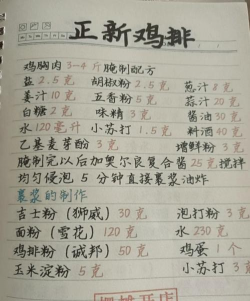 正新鸡排
鸡胸肉3-4斤腌制配方
盐2.5克 胡椒粉2.5克 葱汁8克
姜汁10克 五香粉5克 蒜汁20克
白糖2克 味精3克 酱油30克
水120毫升 小苏打1.5克 料酒40克
乙基麦芽酚3克 增鲜粉3克
腌制完以后加奥尔良复合酱25克搅拌
均匀侵泡5分钟直接裹浆油炸
裹浆的制作
吉士粉（狮威）30克 泡打粉3
面粉（雪花）120克 水230克
鸡排粉（诚邦）50克 鸡蛋1个
玉米淀粉5克 小苏打3